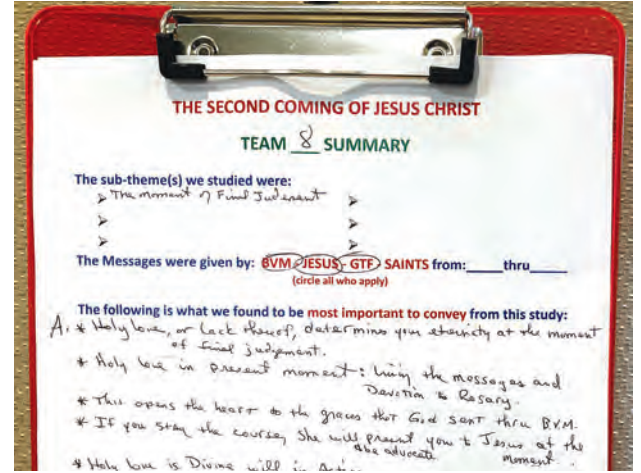 THE SECOND COMING OF JESUS CHRIST
TEAM 8 SUMMARY
The sub-theme(s) we studied were:
➢ The moment of Final Judgment ➢
➢ ➢
➢ ➢
The Messages were given by: BVM - JESUS - GTF SAINTS from:_____thru_____
(circle all who apply)
The following is what we found to be most important to convey from this study:
A. * Holy Love, or Lack thereof, determine your eternity at the moment
of final judgement.
* Holy love in present moment: living the messages and
Devotion to Rosary.
* This opens the heart to the graces that God sent thru B.V.M.
* If you stay the course, She will present you to Jesus at the
the advocate moment
* Holy love is Divine will in